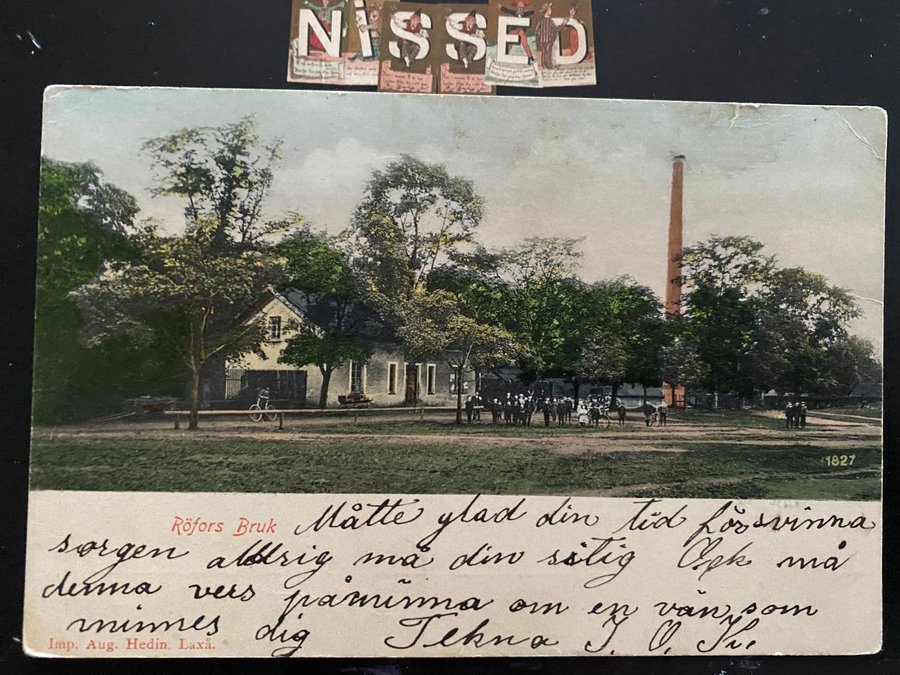 NISSED
1827
Röfors Bruk
Måtte glad din tid försvinna
sorgen aldrig må din stig Och må
denna vers påminna om en vän som
minnes dig Tekna J. O.
Imp. Aug. Hedin, Laxå.